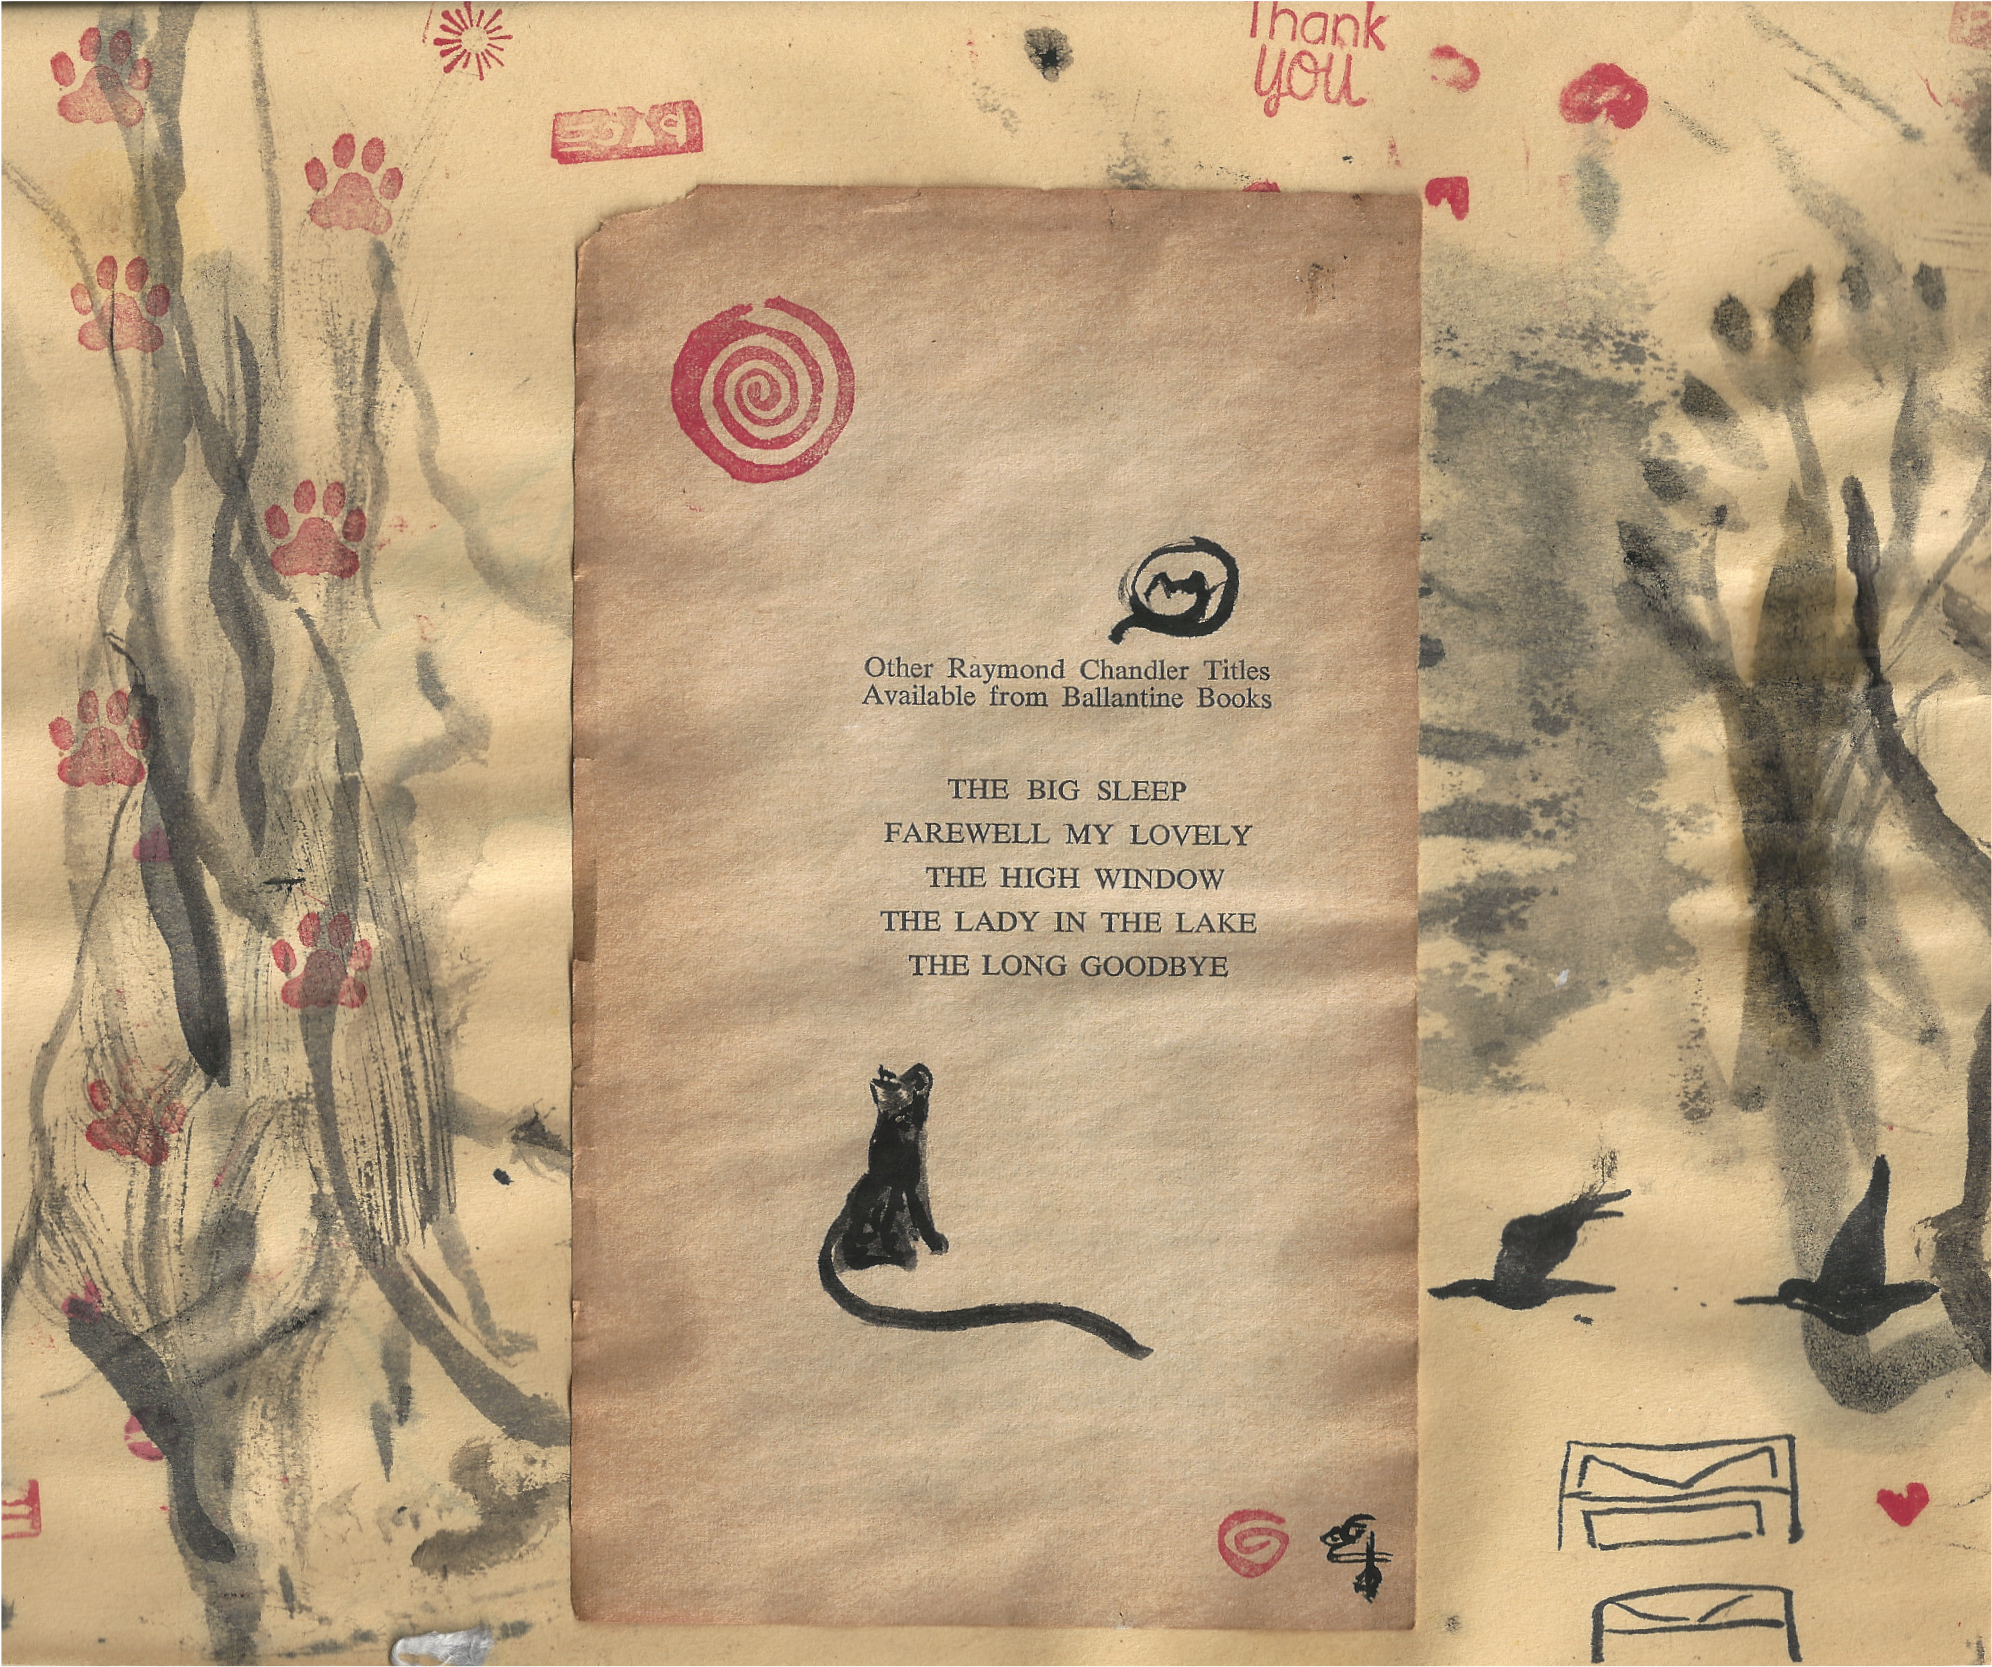 Thank
you
Other Raymond Chandler Titles
Available from Ballantine Books
THE BIG SLEEP
FAREWELL MY LOVELY
THE HIGH WINDOW
THE LADY IN THE LAKE
THE LONG GOODBYE